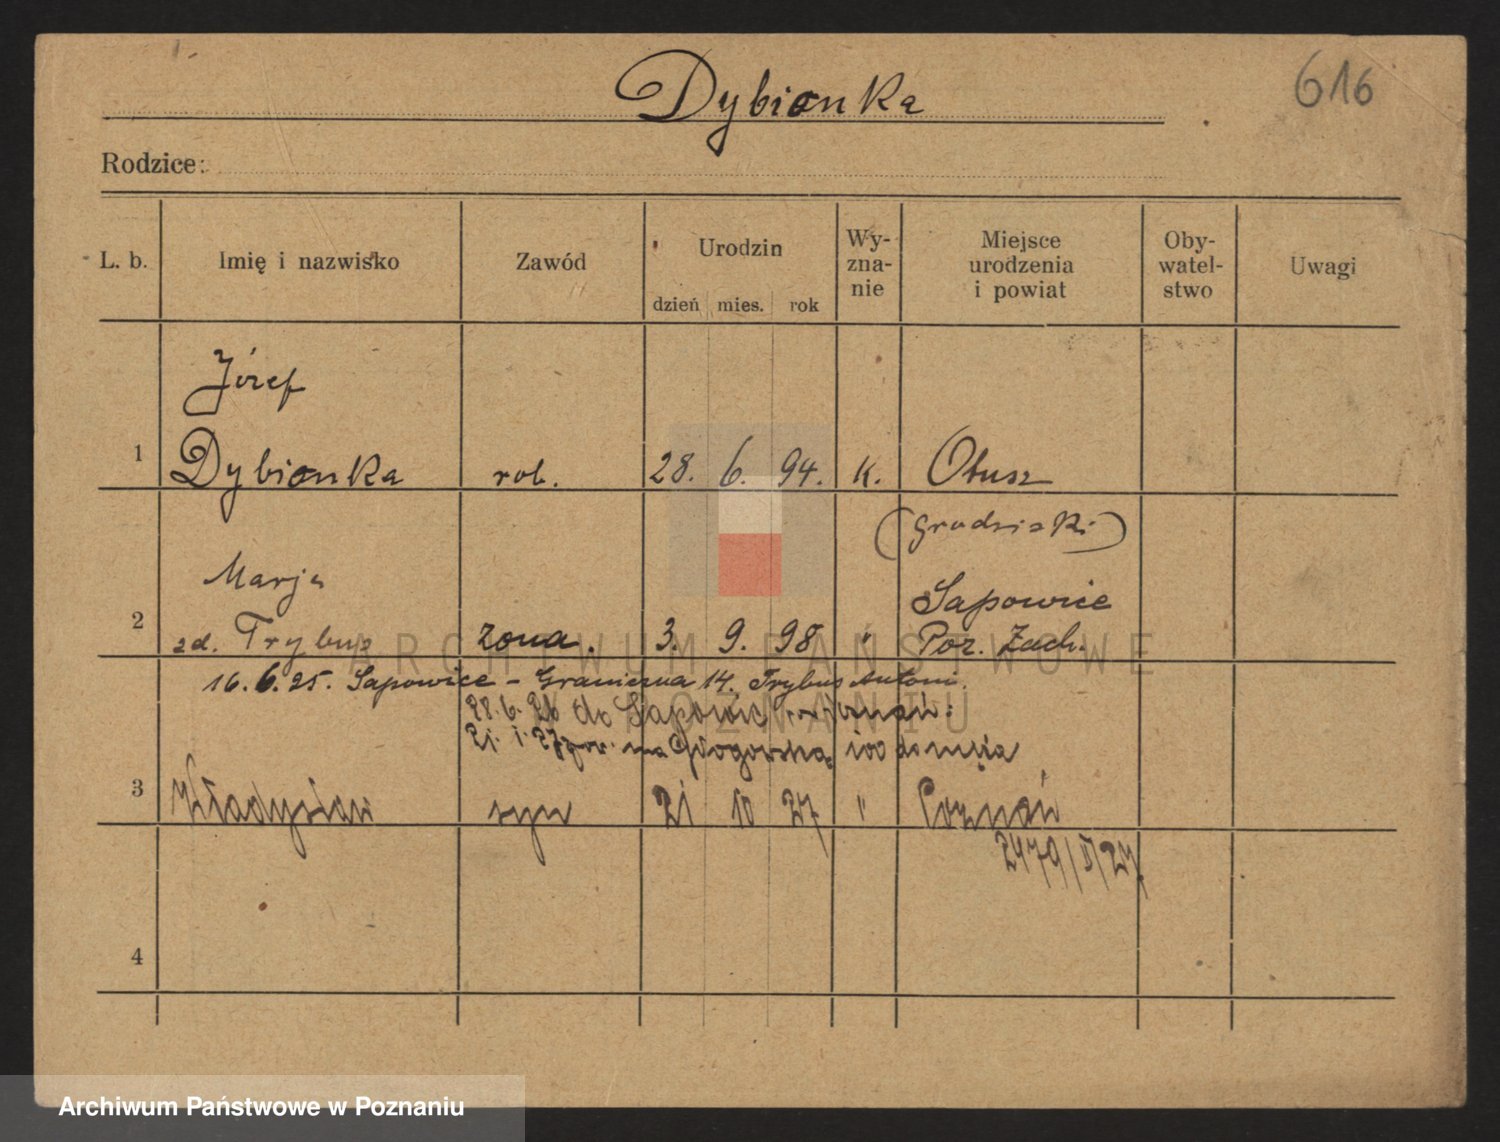 Dybionka
616
Rodzice:
L. b. Imię i nazwisko Zawód Urodzin dzień mies. rok Wy-zna-nie Miejsce urodzenia i powiat Oby-watel-stwo Uwagi
Józef
1 Dybionka rob. 28. 6. 94. k. Otusz
(Grodziski)
Marja
2 zd. Trybus żona. 3. 9. 98 " Sapowice
Poz. Zach.
16.6.25. Sapowice - Graniczna 14. Trybus Antoni.
28.6.26 do Sapowic
21. 1. 27 na Głogowską 100 do męża
3 Władysław syn 21 10 27 " Poznań
2479/V/27
4
ARCHIWUM PAŃSTWOWE
W POZNANIU
Archiwum Państwowe w Poznaniu